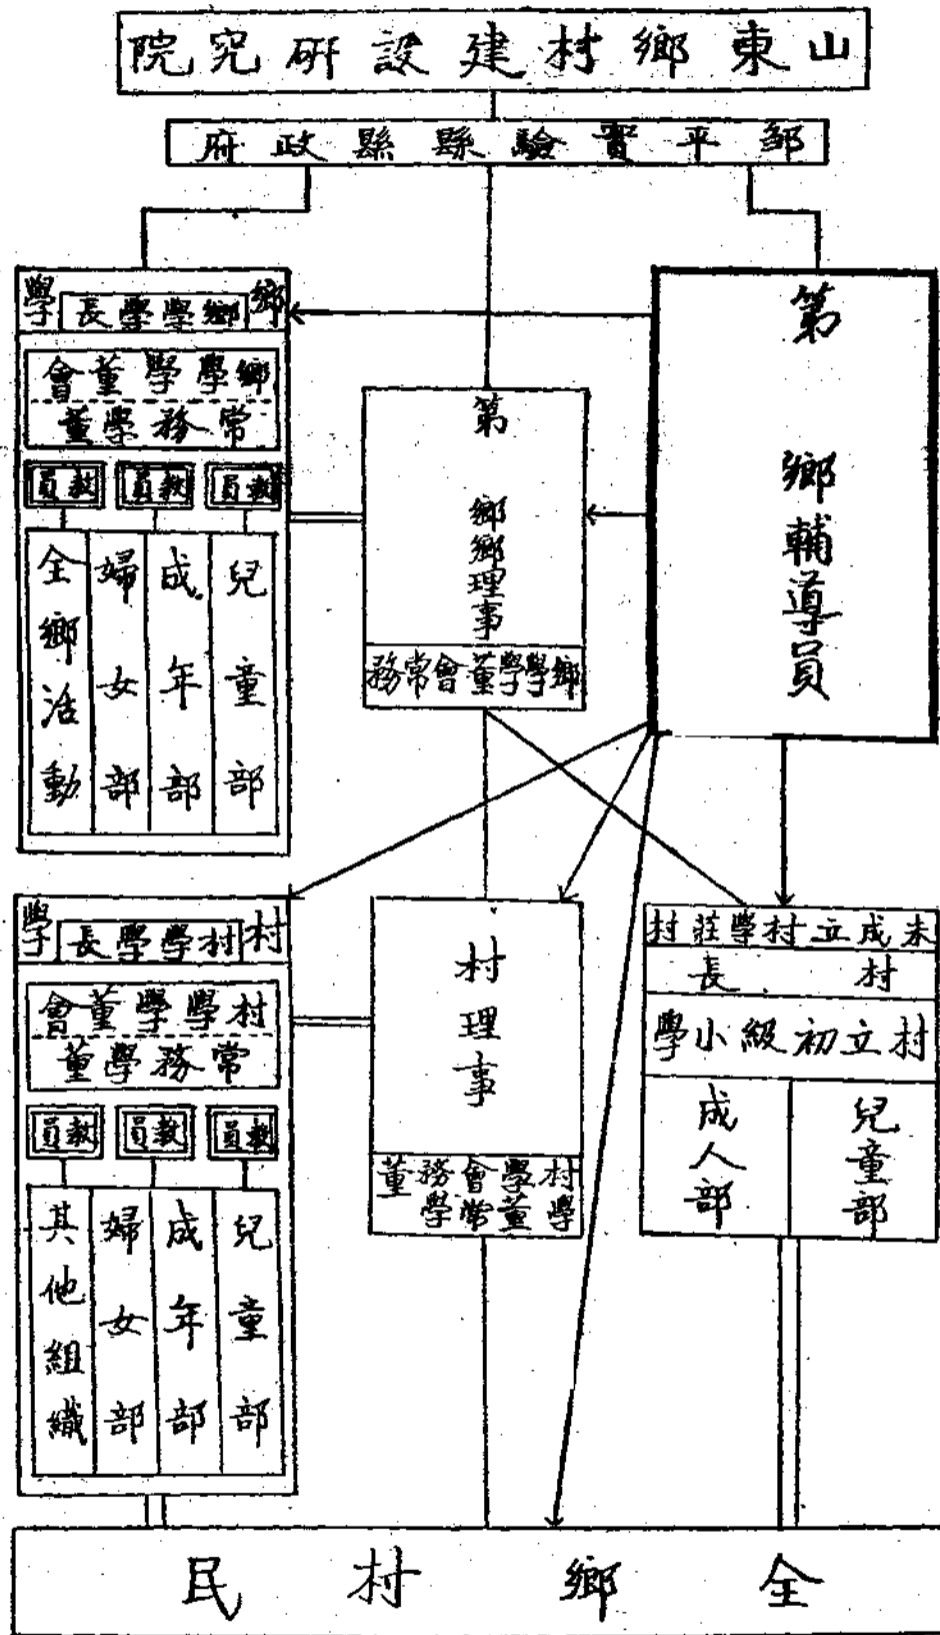 山東鄉村建設研究院
鄒平實驗縣縣政府
鄉學
鄉學學長
鄉學學董會
常務學董
教員
教員
教員
兒童部
成年部
婦女部
全鄉活動
第 鄉鄉理事
鄉學學董會常務
第 鄉輔導員
村學
村學學長
村學學董會
常務學董
教員
教員
教員
兒童部
成年部
婦女部
其他組織
村理事
村學學董會常務學董
未成立村學莊村
村長
村立初級小學
兒童部
成人部
全鄉村民